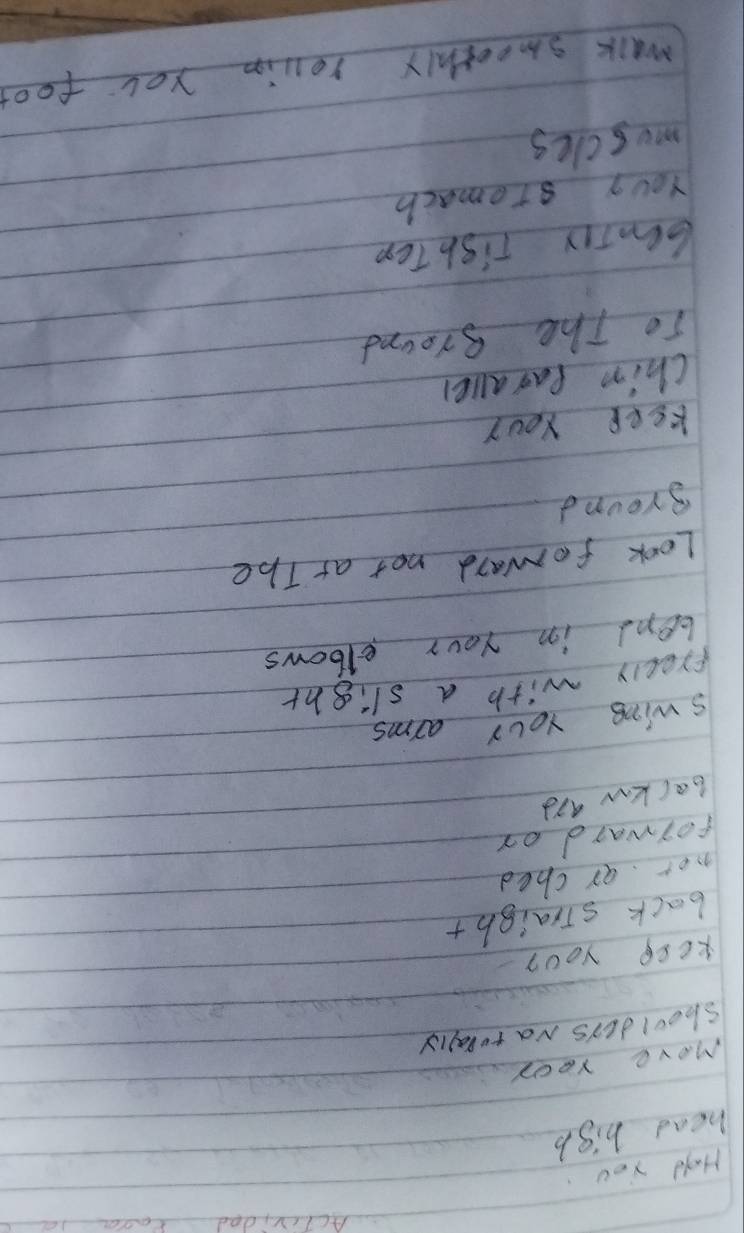 Actividad Para la
Hold you
head high
Move your
shoulders Naturally
keep your
back straight
not arched
forward or
backward
swing your arms
freely with a slight
bend in your elbows
Look forward not at The
ground
keep your
chin Parallel
To The ground
Gently Tighten
Your stomach
muscles
walk smoothly rollin you foot